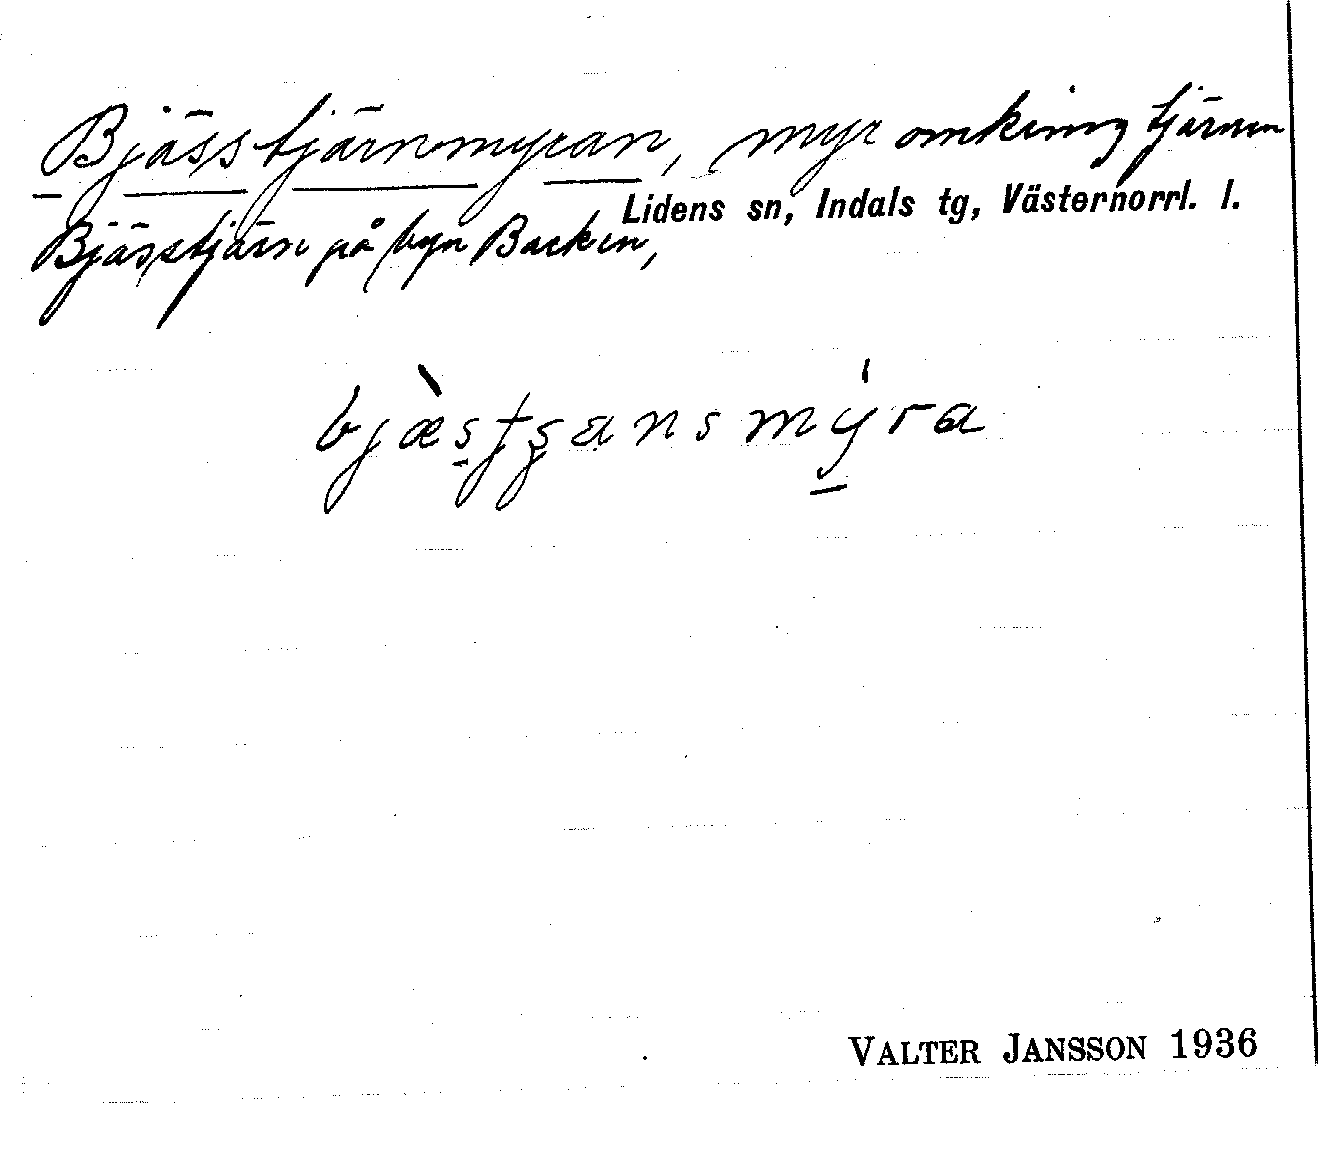 Bjässtjärnmyran, myr omkring tjärnen
Lidens sn, Indals tg, Västernorrl. l.
Bjässtjärn på byn Backen,
bjæ̀stʂansmýra
VALTER JANSSON 1936